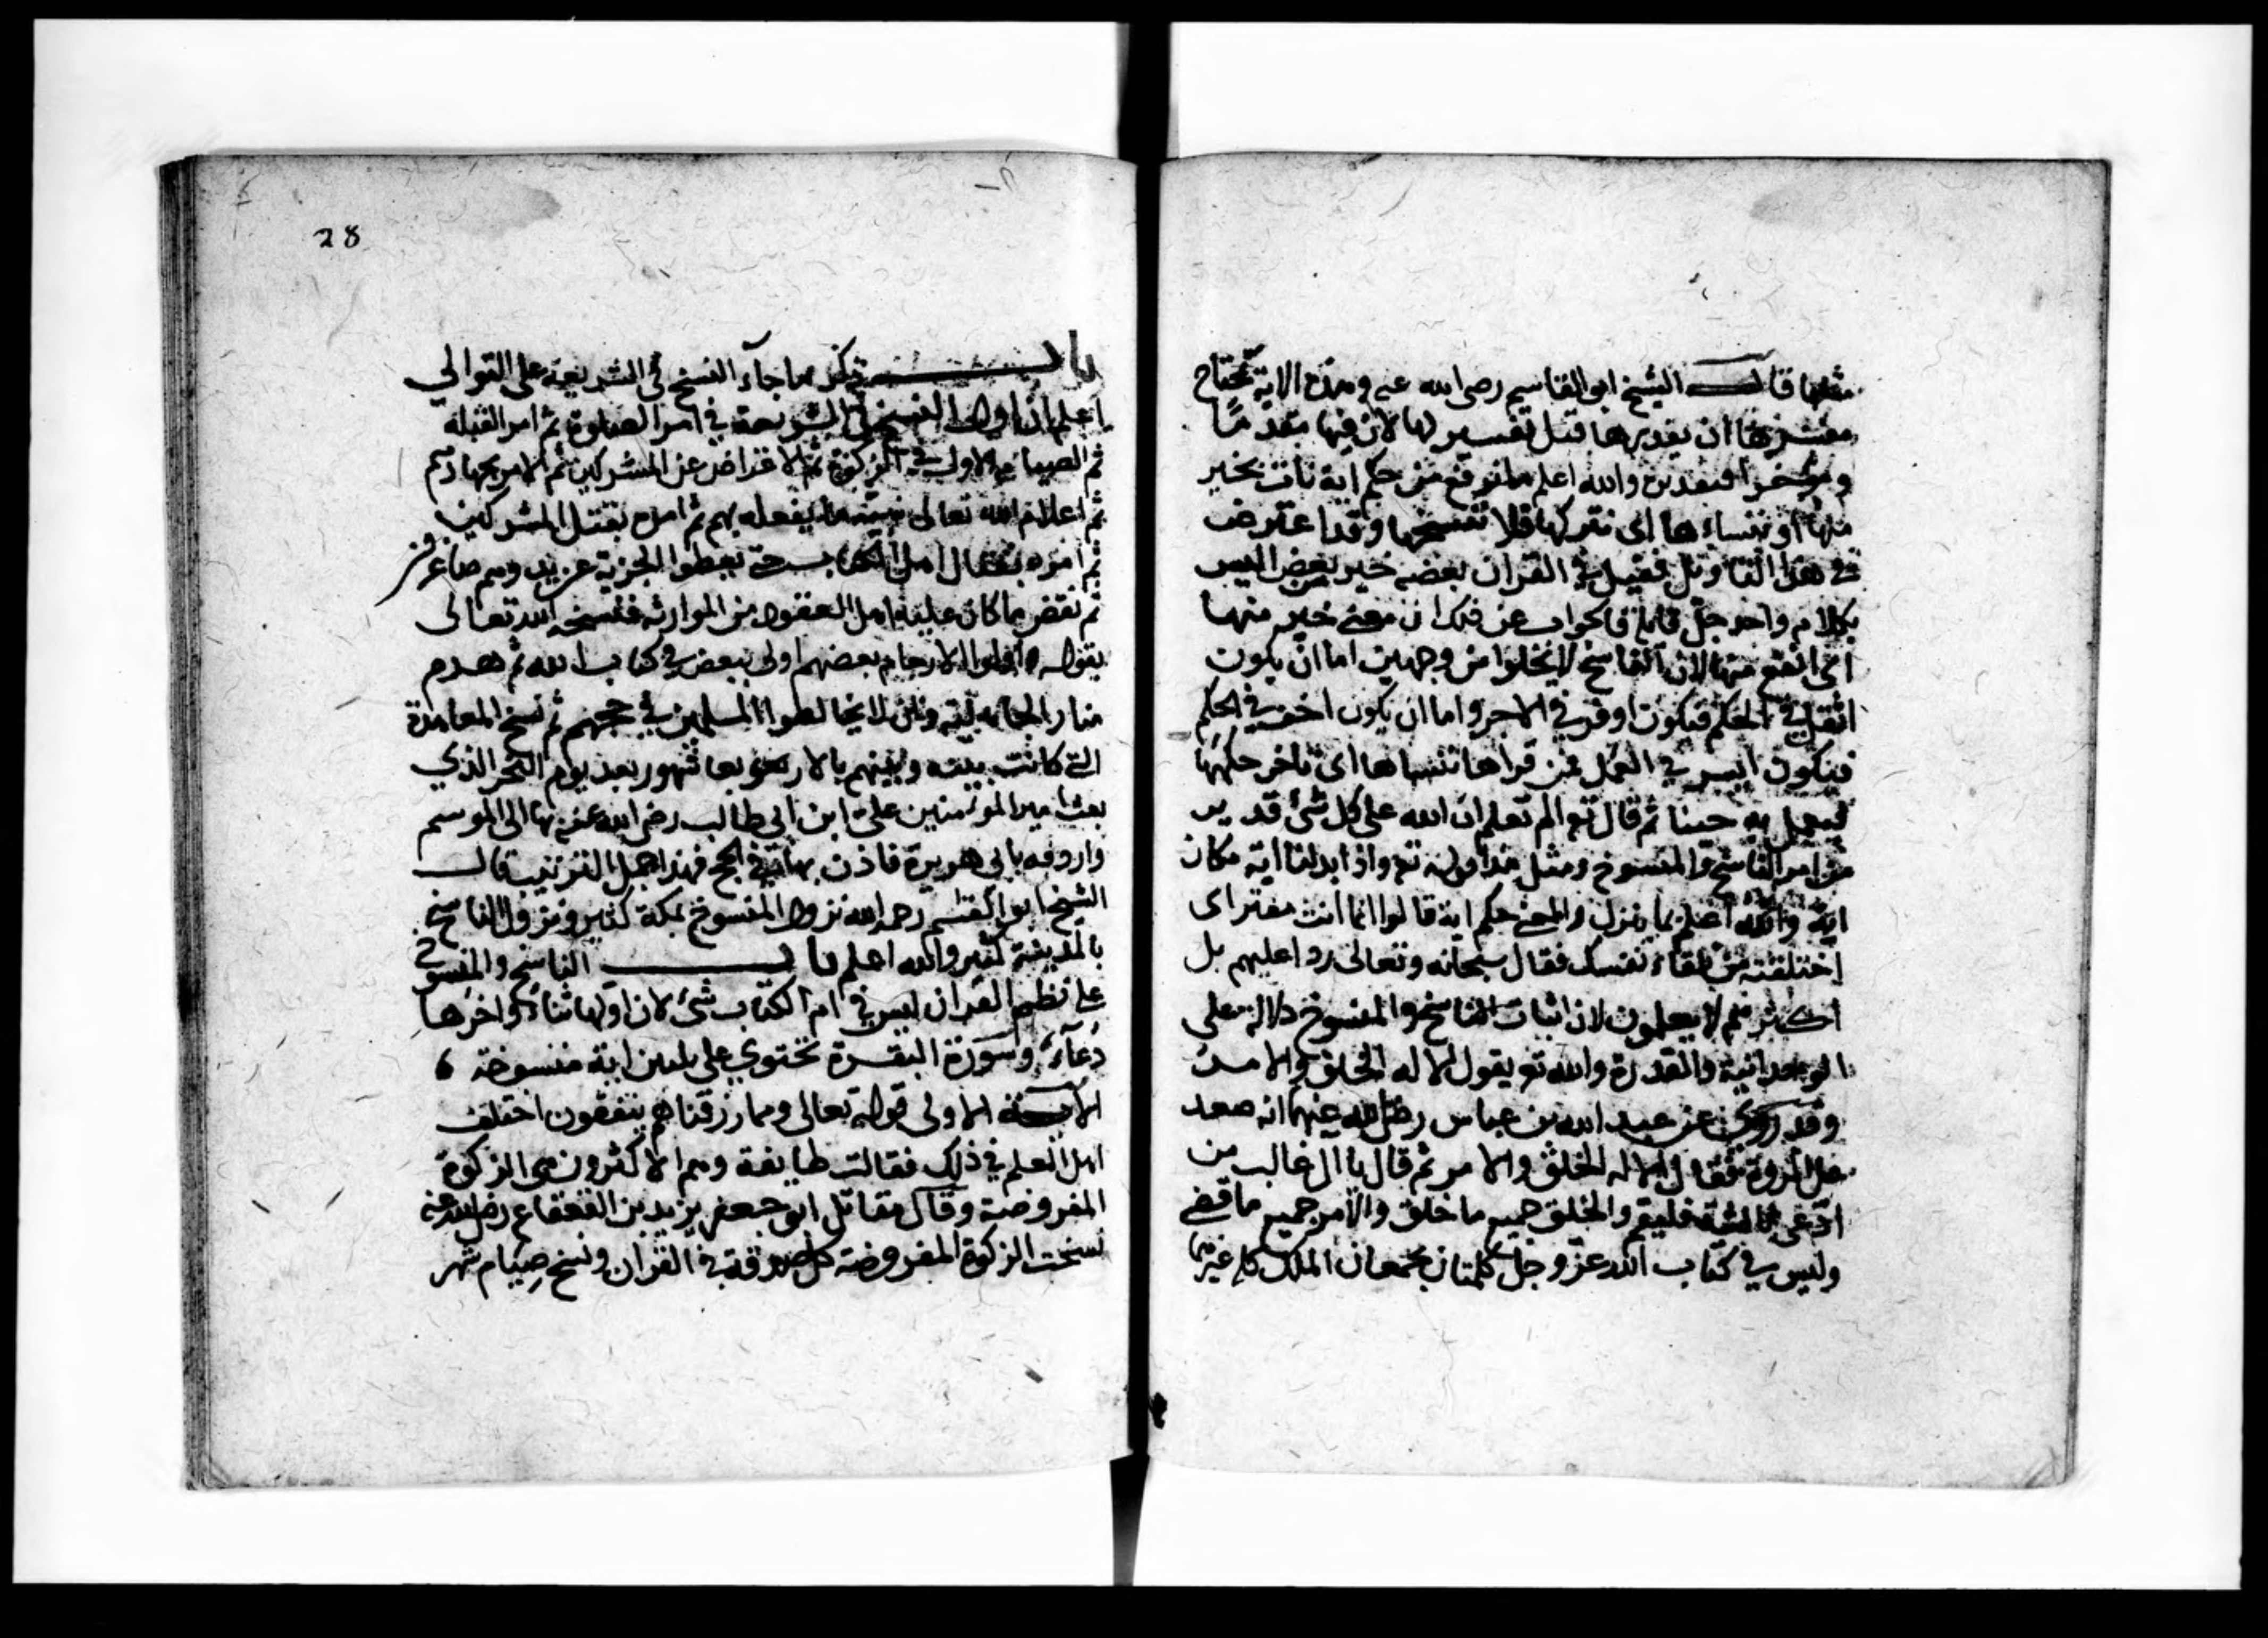 مثلها قال الشيخ ابو القاسم رضى الله عنه وهذه الاية تحتاج
مفسرها ان يقدرها قبل تفسيرها لان فيها مقدما
وموخرا فتقديره والله اعلم ما نرفع من حكم اية نات بخير
منها او ننساءها اى نتركها فلا ننسخها وقد اعترض
في هذا التاويل فقيل في القران بعضه خير من بعض اليس
بكلام واحد جل قايله فالجواب عن ذلك ان معنى خير منها
اى انفع منها لان الناسخ لا يخلوا من وجهين اما ان يكون
اثقل في الحكم فيكون اوفر في الاجر واما ان يكون اخف في الحكم
فيكون ايسر في العمل فمن قراها ننساها اى ناخر حكمها
ليعمل به حينا ثم قال تع الم تعلم ان الله على كل شئ قدير
من امر الناسخ والمنسوخ ومثل هذا قوله تع واذا بدلنا اية مكان
اية والله اعلم بما ينزل والمعنى حكم اية قالوا انما انت مفتر اى
اختلقته من تلقاء نفسك فقال سبحانه وتعالى ردا عليهم بل
اكثرهم لا يعلمون لان اثبات الناسخ والمنسوخ دلالة على
الوحدانية والقدرة والله تع يقول الا له الخلق والامر
وقد روى عن عبد الله بن عباس رضى الله عنهما انه صعد
على المروة فقال الا له الخلق والامر ثم قال يا ال غالب من
ادعى فليقم والخلق جميع ما خلق والامر جميع ما قضى
وليس في كتاب الله عز وجل كلمتان يجمعان الملك كله غيرهما
28
باب ذكر ما جآء النسخ فى الشريعة على التوالي
اعلم ان اول النسخ في الشريعة في امر الصلاوة ثم امر القبله
ثم الصيام الاول ثم الزكوة ثم الاعراض عن المشركين ثم الامر بجهادهم
ثم اعلام الله تعالى نبيه ما يفعله بهم ثم امره بقتل المشركين
ثم امره بقتال اهل الكتاب حتى يعطوا الجزية عن يد وهم صاغرون
ثم نقض ما كان عليه اهل العقود من الموارثه فنسخه الله تعالى
بقوله واولوا الارحام بعضهم اولى ببعض في كتاب الله ثم هدم
منار الجاهليه وان لا يخالطوا المسلمين في حجهم ثم نسخ المعاهدة
التي كانت بينه وبينهم بالاربعة شهور بعد يوم النحر الذي
بعث امير المومنين على ابن ابى طالب رضى الله عنه بها الى الموسم
واردفه بابى هريرة فاذن بها في الحج فهذا جمل الترتيب قال
الشيخ ابو القسم رحمه الله نزول المنسوخ بمكة كثير ونزول الناسخ
بالمدينة كثير والله اعلم باب الناسخ والمنسوخ
على نظم القران ليس في ام الكتاب شئ لان اولها ثناء واخرها
دعآء وسورة البقرة تحتوي على ثلثين اية منسوخة
الاية الاولى قوله تعالى ومما رزقناهم ينفقون اختلف
اهل العلم في ذلك فقالت طايفة وهم الاكثرون هى الزكوة
المفروضة وقال مقاتل ابو جعفر يزيد بن القعقاع رضى الله عنه
نسخت الزكوة المفروضة كل صدقة في القران ونسخ صيام شهر